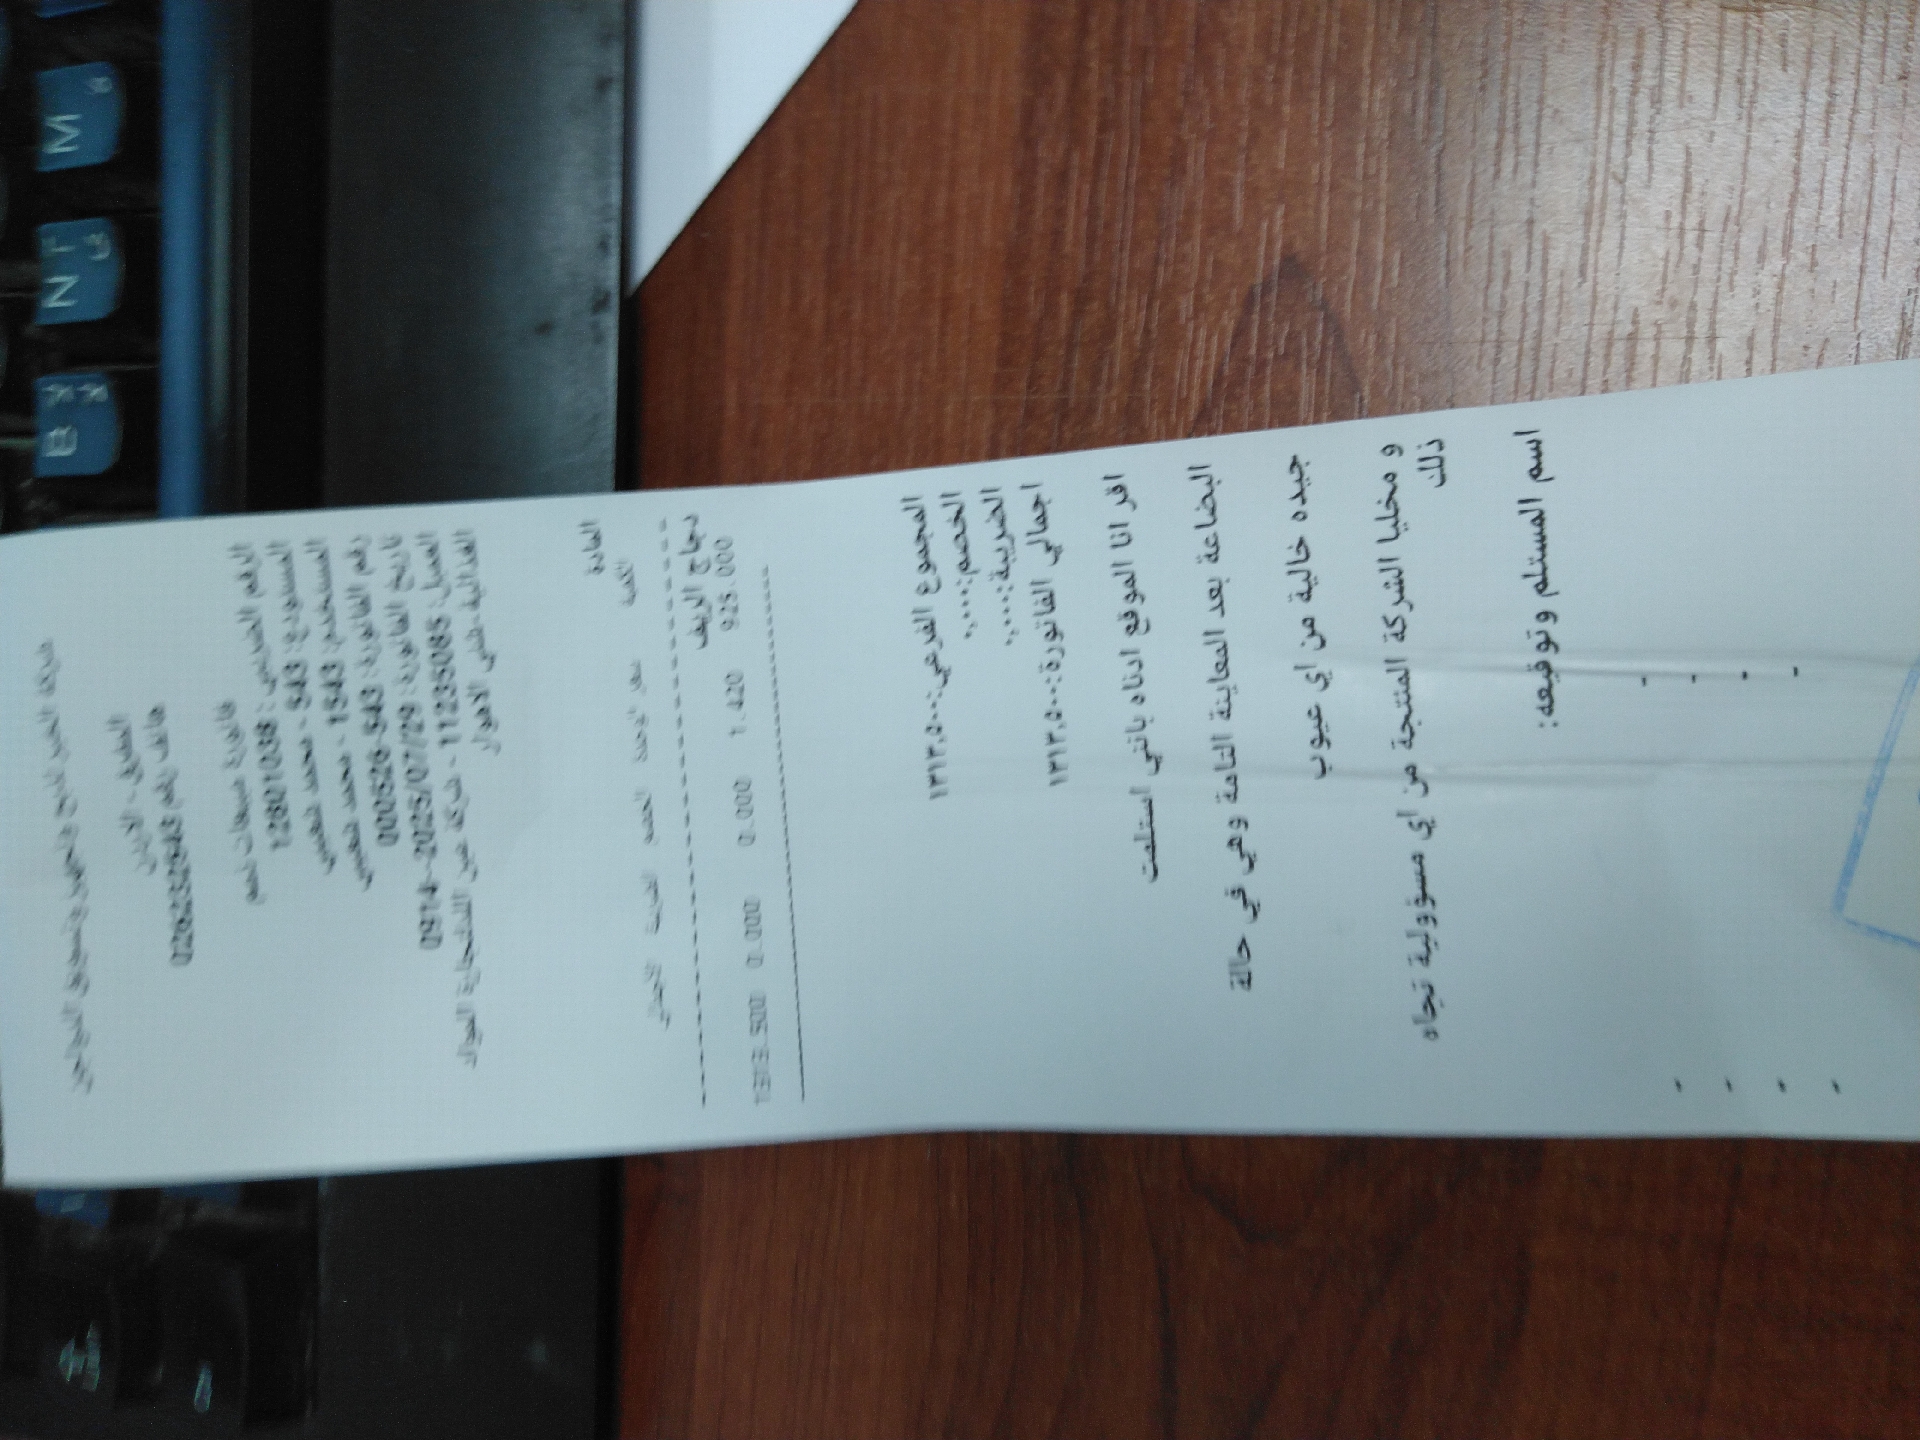 المفرق - الاردن
هاتف رقم 026232643
فاتورة مبيعات ذمم
الرقم الضريبي: 12801038
المستودع: 543 - محمد
المستخدم: 1543 - محمد
رقم الفاتورة: 543-000526
تاريخ الفاتورة: 2025/07/29-0914
العميل: 11235085 - شركة
المادة
الكمية سعر الوحدة الخصم الضريبة الاجمالي
دجاج الريف
925.000 1.420 0.000 0.000 1313.500
المجموع الفرعي:١٣١٣,٥٠٠
الخصم:٠,٠٠٠
الضريبة:٠,٠٠٠
اجمالي الفاتورة:١٣١٣,٥٠٠
اقر انا الموقع ادناه بانني استلمت
البضاعة بعد المعاينة التامة وهي في حالة
جيده خالية من اي عيوب
و مخليا الشركة المنتجة من اي مسؤولية تجاه
ذلك
اسم المستلم وتوقيعه:
B لا
N ى
M ة